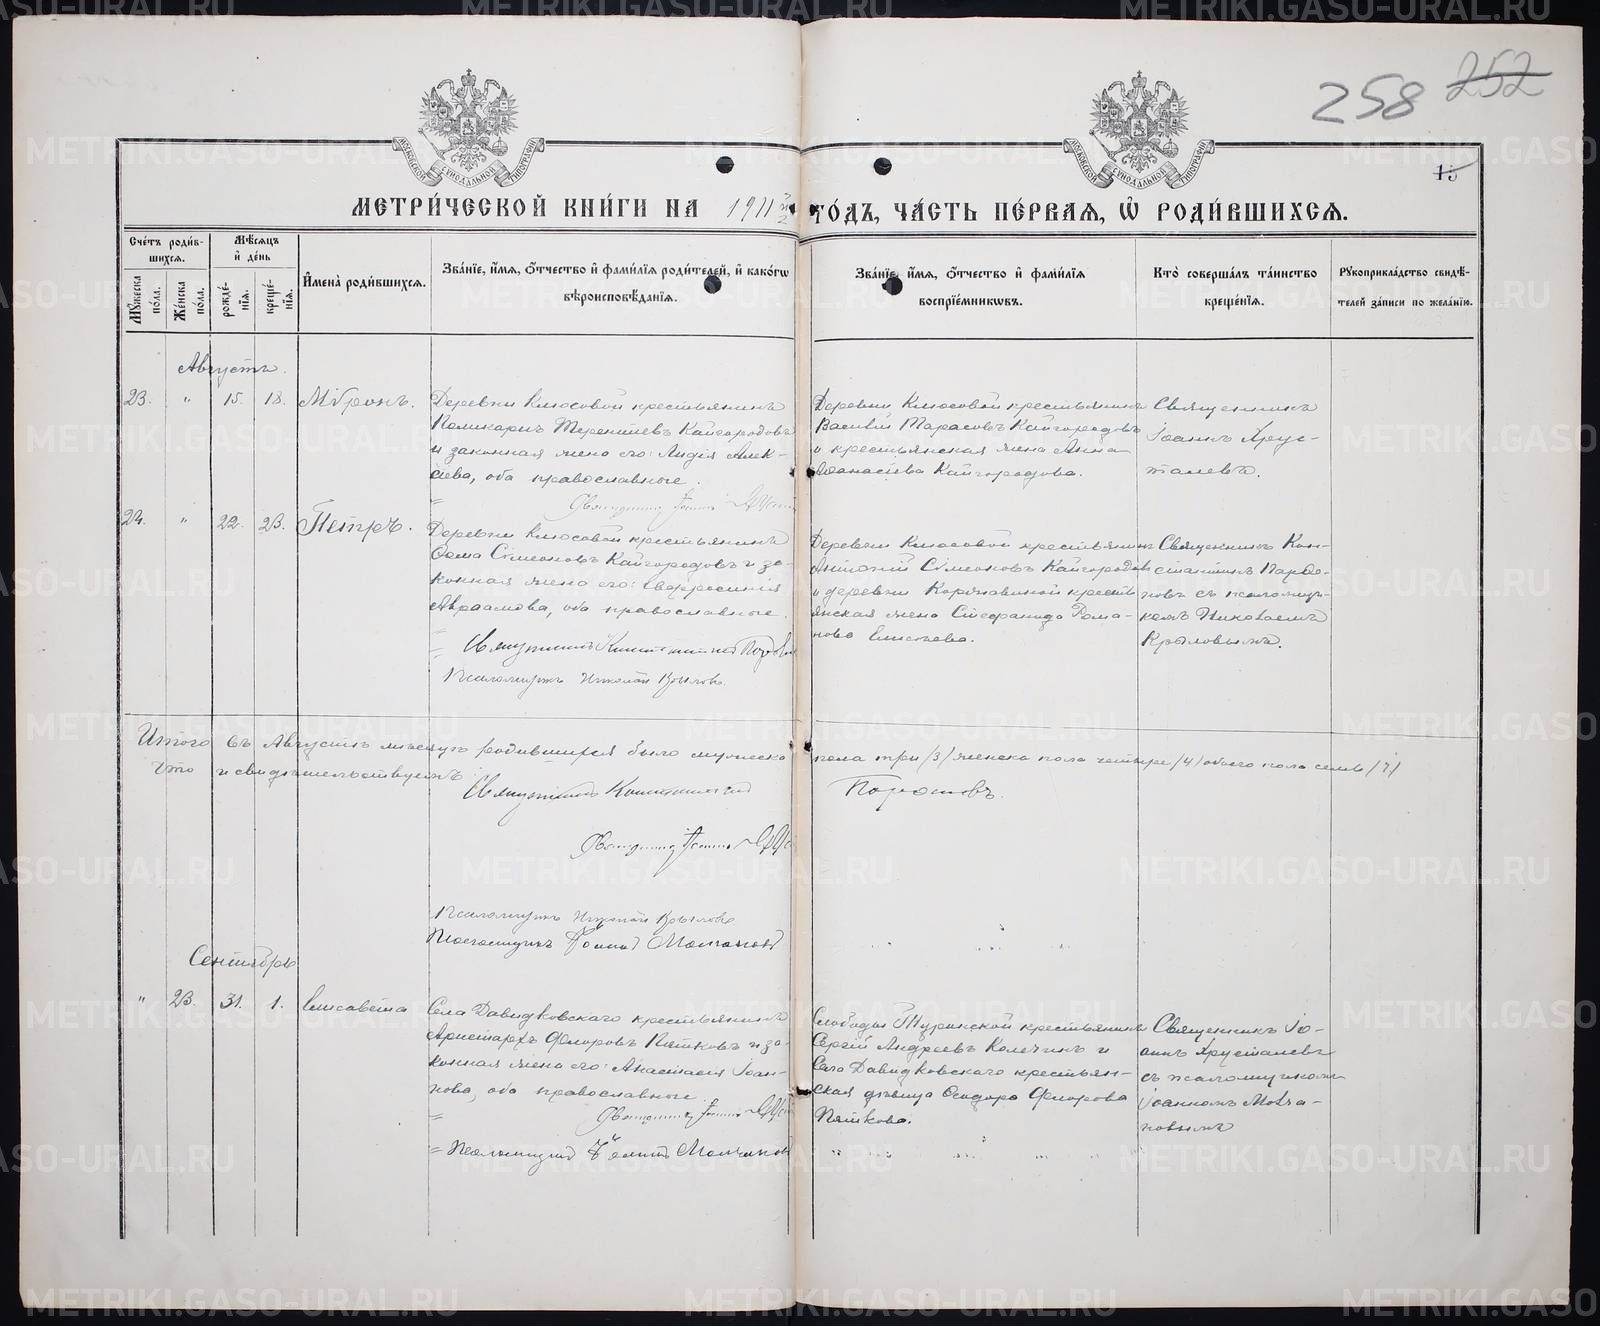 258 252
15
МОСКОВСКОЙ СѴНОДАЛЬНОЙ ТИПОГРАФІИ
МОСКОВСКОЙ СѴНОДАЛЬНОЙ ТИПОГРАФІИ
МЕТРИ́ЧЕСКОЙ КНИ́ГИ НА 1911й ГО́ДЪ, ЧА́СТЬ ПЕ́РВАЯ, Ѿ РОДИ́ВШИХСЯ.
Сче́тъ роди́в-
шихся.
Мꙋ́жеска по́ла.
Же́нска по́ла.
Мѣ́сяцъ
и҆ де́нь
рожде́-
нїя.
креще́-
нїя.
И҆мена̀ роди́вшихся.
Зва́нїе, и҆́мя, ѻ҆́тчество и҆ фами́лїя роди́телей, и҆ како́гѡ
вѣроисповѣ́данїя.
Зва́нїе, и҆́мя, ѻ҆́тчество и҆ фами́лїя
воспрїе́мникѡвъ.
Кто̀ соверша́лъ та́инство
креще́нїя.
Рꙋкоприкла́дство свидѣ́-
телей за́писи по жела́нїю.
Августъ.
23. " 15. 18. Мѵронъ.
Деревни Клюсовой крестьянинъ
Поликарпъ Терентьевъ Кайгородовъ
и законная жена его: Лидія Алек-
сіева, оба православные.
Деревни Клюсовой крестьянинъ
Василій Тарасовъ Кайгородовъ
и крестьянская жена Анна
Аѳанасіева Кайгородова.
Священникъ
Іоаннъ Хрус-
талевъ.
24. " 22. 23. Петръ.
Деревни Клюсовой крестьянинъ
Ѳома Сѵмеоновъ Кайгородовъ и за-
конная жена его: Евфросинія
Авраамова, оба православные.
Священникъ Константинъ
Псаломщикъ Николай Крыловъ.
Деревни Клюсовой крестьянинъ
Антоній Сѵмеоновъ Кайгородовъ
и деревни крестья-
янская жена Стефанида Рома-
нова Елисѣева.
Священникъ Кон-
стантинъ
новъ съ псаломщи-
комъ Николаемъ
Крыловымъ.
Итого въ Августѣ мѣсяцѣ родившихся было мужеска пола три /3/ женска пола четыре /4/ обоего пола семь /7/
Что и свидѣтельствуемъ:
Священникъ Константинъ
Священникъ Іоаннъ
Псаломщикъ Николай Крыловъ
Псаломщикъ Іоаннъ Молчановъ
Сентябрь
" 23. 31. 1. Елисавета
Села Давидковскаго крестьянинъ
Аристархъ Флоровъ Пятковъ и за-
конная жена его: Анастасія Іоан-
нова, оба православные.
Священникъ Іоаннъ
Псаломщикъ Іоаннъ Молчановъ
Слободы Туринской крестьянинъ
Сергій Андреевъ Колечинъ и
Села Давидковскаго крестьян-
ская дѣвица Ѳеодора Флорова
Пяткова.
Священникъ Іо-
аннъ Хрусталевъ
съ псаломщикомъ
Іоанномъ Молча-
новымъ
METRIKI.GASO-URAL.RU